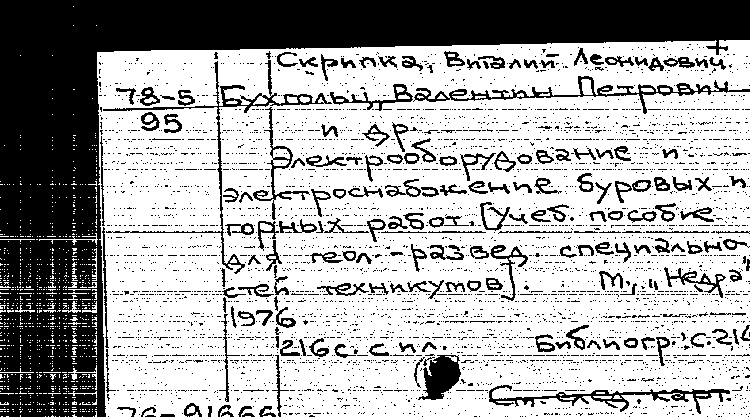 Скрипка, Виталий Леонидович.
78-5 Бухгольц, Валентин Петрович
95
и др.
Электрооборудование и
электроснабжение буровых и
горных работ. [Учеб. пособие
для геол.-развед. специально-
стей техникумов]. М., "Недра",
1976.
216 с. с ил. Библиогр.: с. 216
См. след. карт.
76-91666